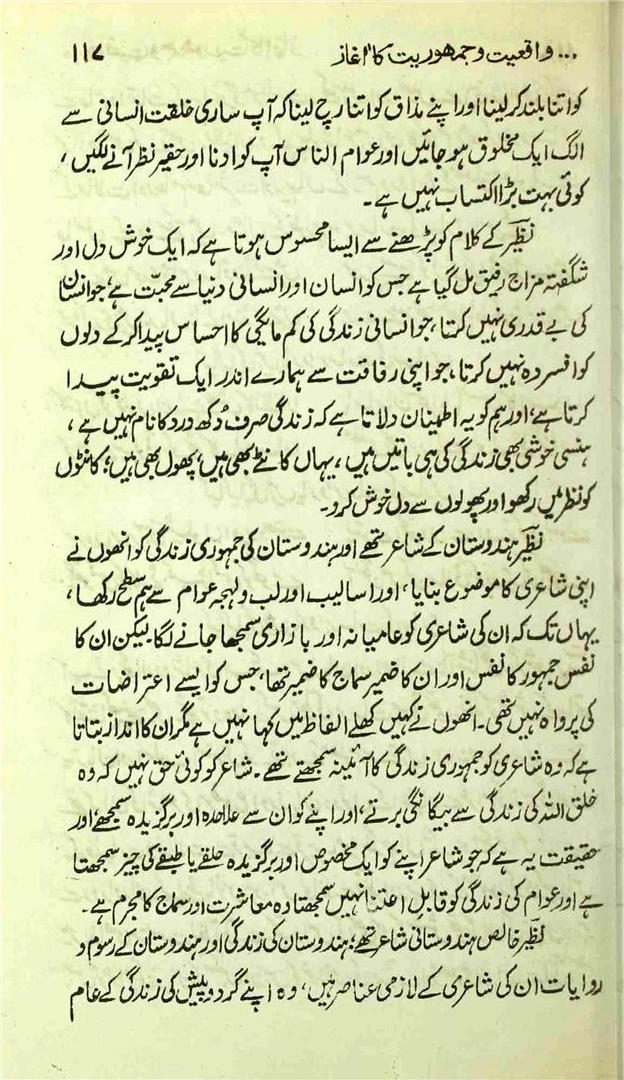 ... واقعیت و جمہوریت کا آغاز ۱۱۷
کو اتنا بلند کر لینا اور اپنے مذاق کو اتنا رچ لینا کہ آپ ساری خلقت انسانی سے
الگ ایک مخلوق ہو جائیں اور عوام الناس آپ کو ادنا اور حقیر نظر آنے لگیں ،
کوئی بہت بڑا اکتساب نہیں ہے ۔
نظیرؔ کے کلام کو پڑھنے سے ایسا محسوس ہوتا ہے کہ ایک خوش دل اور
شگفتہ مزاج رفیق مل گیا ہے جس کو انسان اور انسانی دنیا سے محبّت ہے، جو انسان
کی بے قدری نہیں کرتا ، جو انسانی زندگی کی کم مائگی کا احساس پیدا کر کے دلوں
کو افسردہ نہیں کرتا ، جو اپنی رفاقت سے ہمارے اندر ایک تقویت پیدا
کرتا ہے، اور ہم کو یہ اطمینان دلاتا ہے کہ زندگی صرف دُکھ درد کا نام نہیں ہے ،
ہنسی خوشی بھی زندگی کی ہی باتیں ہیں ، یہاں کانٹے بھی ہیں، پھول بھی ہیں؛ کانٹوں
کو نظر میں رکھو اور پھولوں سے دل خوش کرو ۔
نظیرؔ ہندوستان کے شاعر تھے اور ہندوستان کی جمہوری زندگی کو انھوں نے
اپنی شاعری کا موضوع بنایا ، اور اسالیب اور لب و لہجہ عوام سے ہم سطح رکھا ،
یہاں تک کہ ان کی شاعری کو عامیانہ اور بازاری سمجھا جانے لگا۔ لیکن ان کا
نفس جمہور کا نفس اور ان کا ضمیر سماج کا ضمیر تھا، جس کو ایسے اعتراضات
کی پرواہ نہیں تھی ۔ انھوں نے کہیں کھلے الفاظ میں کہا نہیں ہے مگر ان کا انداز بتاتا
ہے کہ وہ شاعری کو جمہوری زندگی کا آئینہ سمجھتے تھے ۔ شاعر کو کوئی حق نہیں کہ وہ
خلق اللہ کی زندگی سے بیگانگی برتے، اور اپنے کو ان سے علاحدہ اور برگزیدہ سمجھے، اور
حقیقت یہ ہے کہ جو شاعر اپنے کو ایک مخصوص اور برگزیدہ حلقے یا طبقے کی چیز سمجھتا
ہے اور عوام کی زندگی کو قابلِ اعتنا نہیں سمجھتا وہ معاشرت اور سماج کا مجرم ہے ۔
نظیرؔ خالص ہندوستانی شاعر تھے؛ ہندوستان کی زندگی اور ہندوستان کے رسوم و
روایات ان کی شاعری کے لازمی عناصر ہیں ، وہ اپنے گرد و پیش کی زندگی کے عام